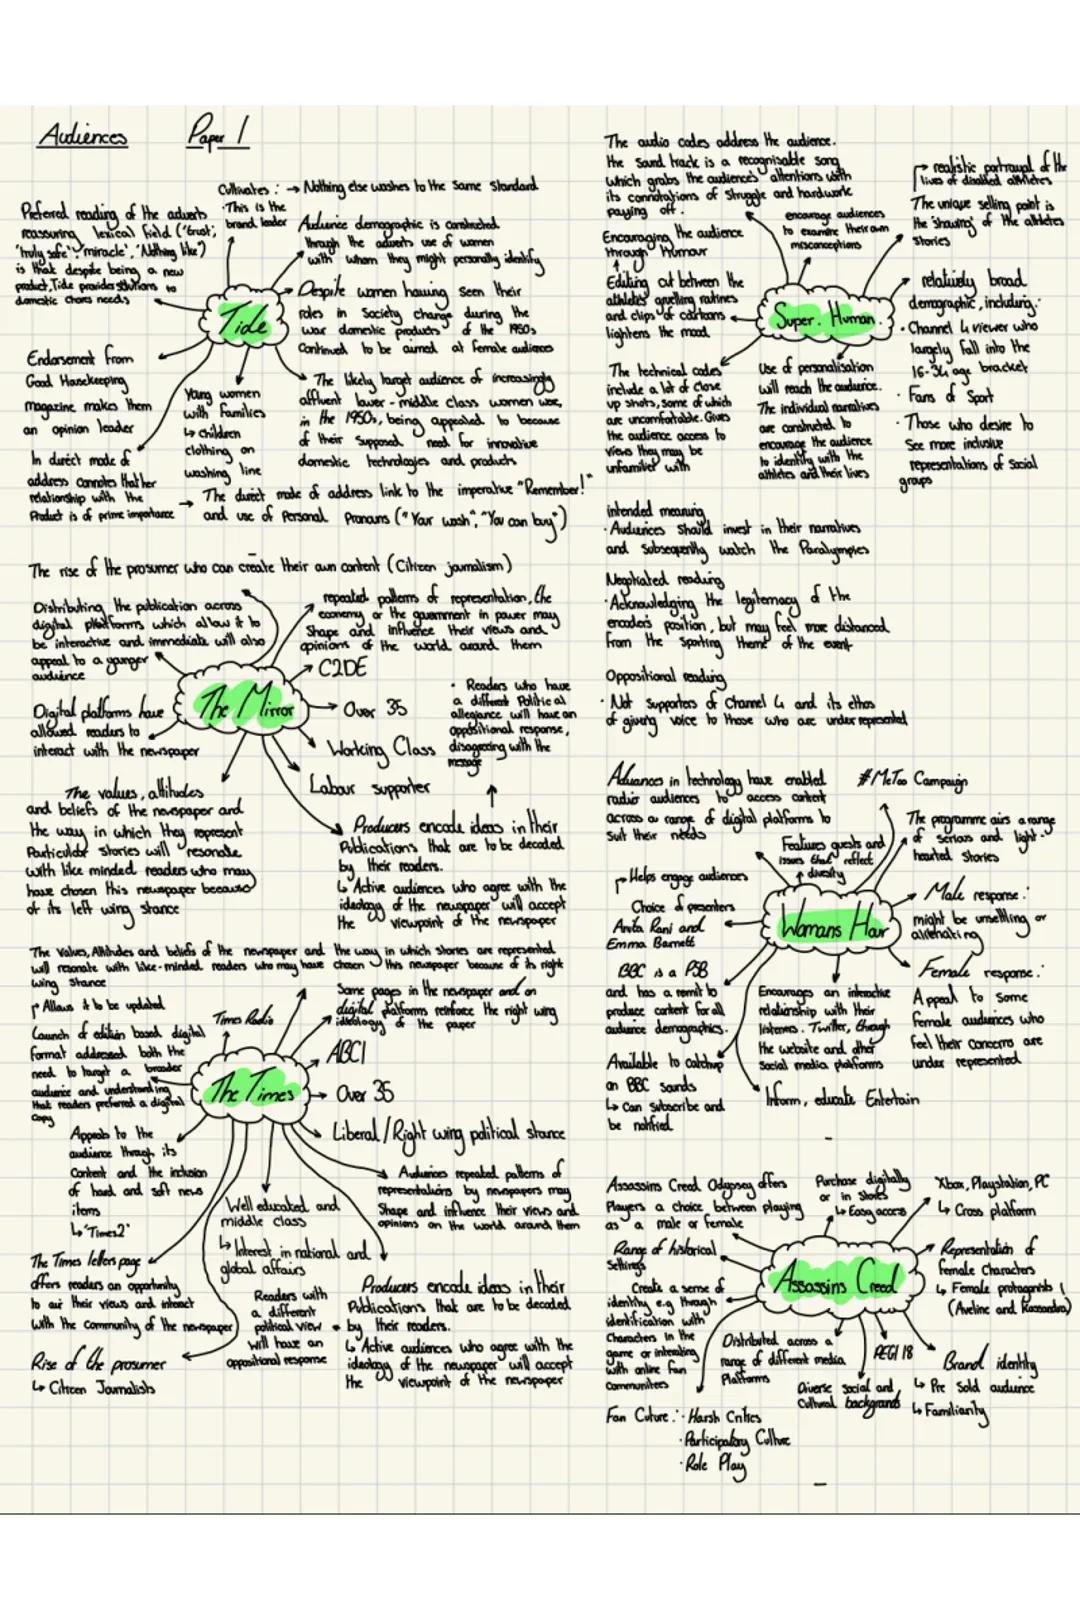 Audiences Paper 1
Cultivates : → Nothing else washes to the same standard
· This is the
brand leader
Preferred reading of the adverts
reassuring lexical field ('trust';
'truly safe'; 'miracle', 'Nothing like')
is that despite being a new
product, Tide provides solutions to
domestic chores needs
Audience demographic is constructed
through the adverts use of women
with whom they might personally identify
Despite women having seen their
roles in Society change during the
war domestic products of the 1950s
Continued to be aimed at female audiences
Tide
Endorsement from
Good Housekeeping
magazine makes them
an opinion leader
Young women
with families
↳ children
clothing on
washing line
The likely target audience of increasingly
affluent lower-middle class women were,
in the 1950s, being appealed to because
of their supposed need for innovative
domestic technologies and products
In direct mode of
address connotes that her
relationship with the
Product is of prime importance
→ The direct mode of address link to the imperative "Remember!"
and use of Personal Pronouns ("Your wash", "You can buy")
The rise of the prosumer who can create their own content (Citizen journalism)
Distributing the publication across
digital platforms which allow it to
be interactive and immediate will also
appeal to a younger
audience
repeated patterns of representation, the
economy or the government in power may
Shape and influence their views and
opinions of the world around them
The Mirror
C2DE
Over 35
Working Class
Labour supporter
Digital platforms have
allowed readers to
interact with the newspaper
· Readers who have
a different Political
allegiance will have an
oppositional response,
disagreeing with the
message
The values, attitudes
and beliefs of the newspaper and
the way in which they represent
Particular stories will resonate
with like minded readers who may
have chosen this newspaper because
of its left wing stance
Producers encode ideas in their
Publications that are to be decoded
by their readers.
↳ Active audiences who agree with the
ideology of the newspaper will accept
the viewpoint of the newspaper
The Values, Attitudes and beliefs of the newspaper and the way in which stories are represented
will resonate with like-minded readers who may have chosen this newspaper because of its right
wing stance
Allows it to be updated
Launch of edition based digital
format addressed both the
need to target a broader
audience and understanding
that readers preferred a digital
copy
Times Radio
Some pages in the newspaper and on
digital platforms reinforce the right wing
ideology of the paper
The Times
ABC1
Over 35
Liberal / Right wing political stance
Appeals to the
audience through its
Content and the inclusion
of hard and soft news
items
↳ 'Times2'
Audiences repeated patterns of
representations by newspapers may
Shape and influence their views and
opinions on the world around them
Well educated and
middle class
↳ Interest in national and
global affairs
The Times letters page
offers readers an opportunity
to air their views and interact
with the community of the newspaper
Rise of the prosumer
↳ Citizen Journalists
Readers with
a different
political view
will have an
oppositional response
Producers encode ideas in their
Publications that are to be decoded
by their readers.
↳ Active audiences who agree with the
ideology of the newspaper will accept
the viewpoint of the newspaper
The audio codes address the audience.
the sound track is a recognisable song
which grabs the audience's attentions with
its connotations of struggle and hardwork
paying off.
Encouraging the audience
through humour
Editing cut between the
athletes gruelling routines
and clips of cartoons
lightens the mood
encourage audiences
to examine their own
misconceptions
realistic portrayal of the
lives of disabled athletes
The unique selling point is
the 'showing' of the athletes
stories
Super. Human.
relatively broad
demographic, including:
· Channel 4 viewer who
largely fall into the
16-34 age bracket
· Fans of Sport
· Those who desire to
see more inclusive
representations of social
groups
The technical codes
include a lot of close
up shots, some of which
are uncomfortable. Gives
the audience access to
views they may be
unfamiliar with
Use of personalisation
will reach the audience.
The individual narratives
are constructed to
encourage the audience
to identify with the
athletes and their lives
intended meaning
· Audiences should invest in their narratives
and subsequently watch the Paralympics
Negotiated reading
· Acknowledging the legitemacy of the
encoder's position, but may feel more distanced
from the sporting theme of the event
Oppositional reading
· Not supporters of Channel 4 and its ethos
of giving voice to those who are under represented
Advances in technology have enabled
radio audiences to access content
across a range of digital platforms to
suit their needs
#MeToo Campaign
Features guests and
issues that reflect
diversity
The programme airs a range
of serious and light-
hearted stories
Helps engage audiences
Choice of presenters
Anita Rani and
Emma Barnett
Womans Hour
Male response:
might be unsettling or
alienating
Female response:
Appeal to some
female audiences who
feel their concerns are
under represented
BBC is a PSB
and has a remit to
produce content for all
audience demographics.
Available to catchup
on BBC sounds
↳ Can subscribe and
be notified
Encourages an interactive
relationship with their
listeners. Twitter, through
the website and other
social media platforms
Inform, educate Entertain
Assassins Creed Odyssey offers
Players a choice between playing
as a male or female
Purchase digitally
or in stores
↳ Easy access
Xbox, Playstation, PC
↳ Cross platform
Range of historical
Settings
Create a sense of
identity e.g through
identification with
Characters in the
game or interacting
with online fan
communitees
Assassins Creed
Representation of
female characters
↳ Female protagonists
(Aveline and Kassandra)
Distributed across a
range of different media
Platforms
PEGI 18
Diverse social and
Cultural backgrounds
Brand identity
↳ Pre Sold audience
↳ Familiarity
Fan Cuture: · Harsh Critics
· Participatory Culture
· Role Play